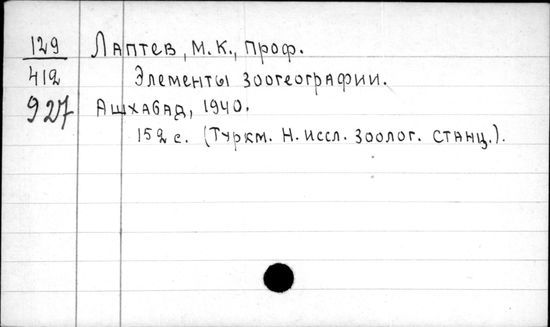 129 Лаптев, М.К., Проф.
412 Элементы зоогеографии.
927 Ашхабад, 1940.
152 с. (Туркм. Н. иссл. зоолог. станц.).